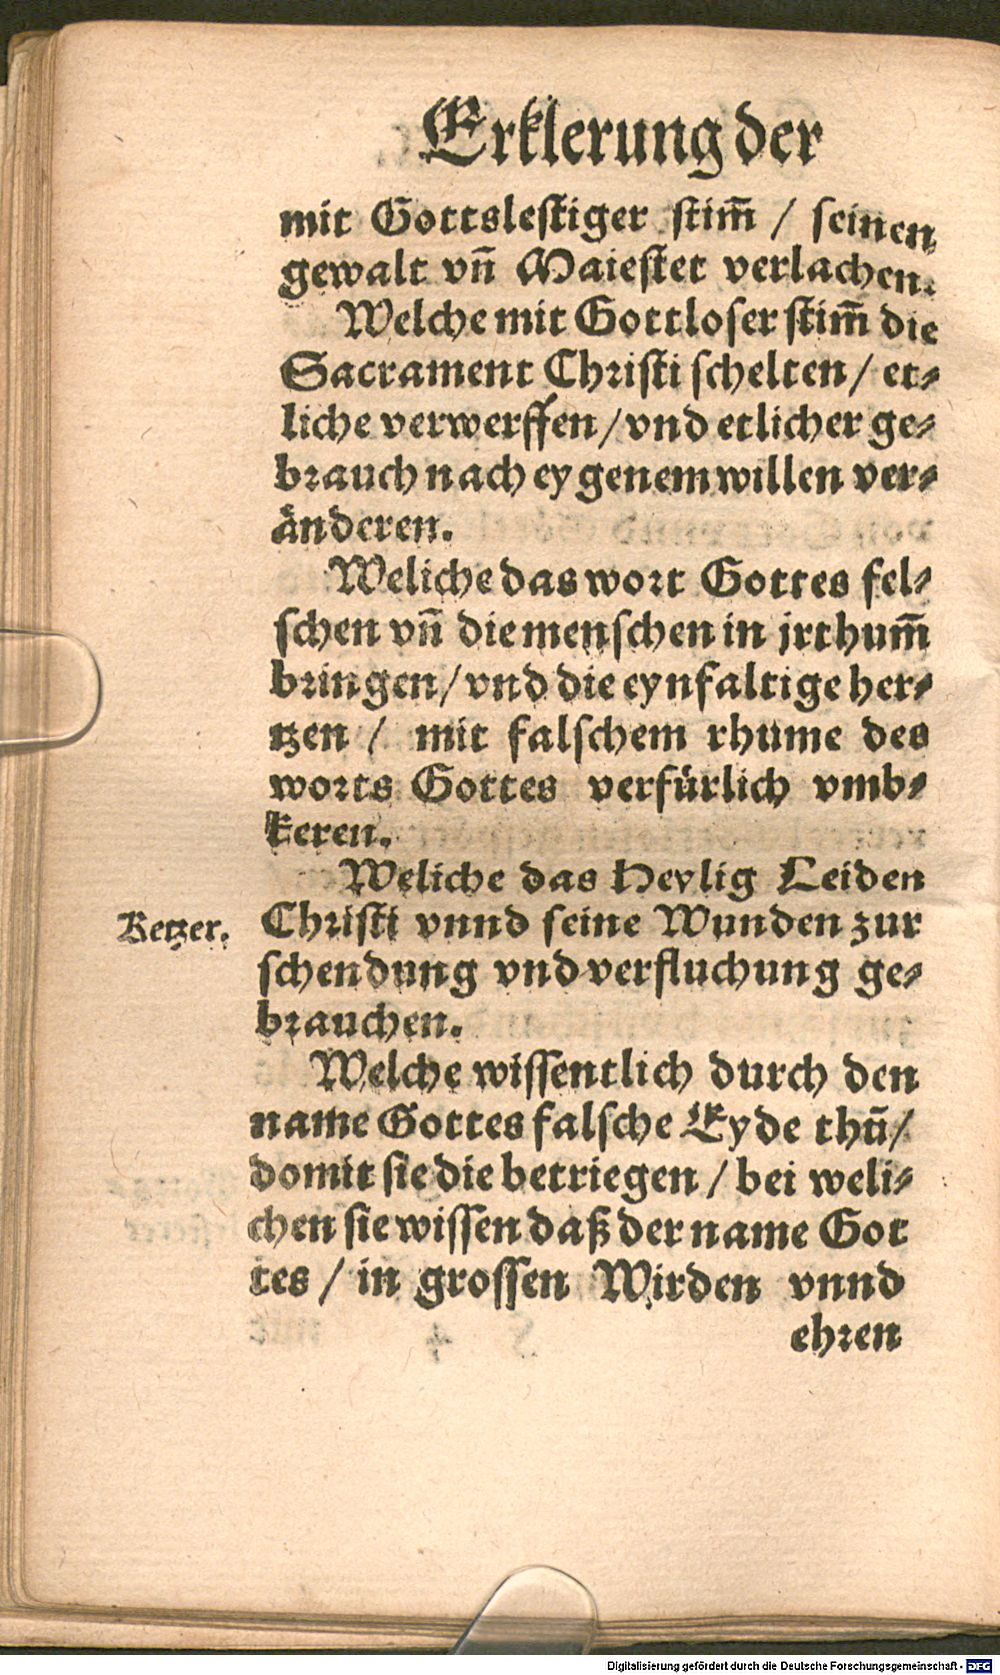 Erklerung der
mit Gottslestiger stim̃ / seinen
gewalt vñ Maiestet verlachen.
Welche mit Gottloser stim̃ die
Sacrament Christi schelten / et⸗
liche verwerffen / vnd etlicher ge⸗
brauch nach eygenem willen ver⸗
änderen.
Weliche das wort Gottes fel⸗
schen vñ die menschen in jrthum̃
bringen / vnd die eynfaltige her⸗
tzen / mit falschem rhume des
worts Gottes verfürlich vmb⸗
keren.
Weliche das Heylig Leiden
Ketzer.
Christi vnnd seine Wunden zur
schendung vnd verfluchung ge⸗
brauchen.
Welche wissentlich durch den
name Gottes falsche Eyde thũ /
domit sie die betriegen / bei weli⸗
chen sie wissen daß der name Got
tes / in grossen Wirden vnnd
ehren
Digitalisierung gefördert durch die Deutsche Forschungsgemeinschaft - DFG